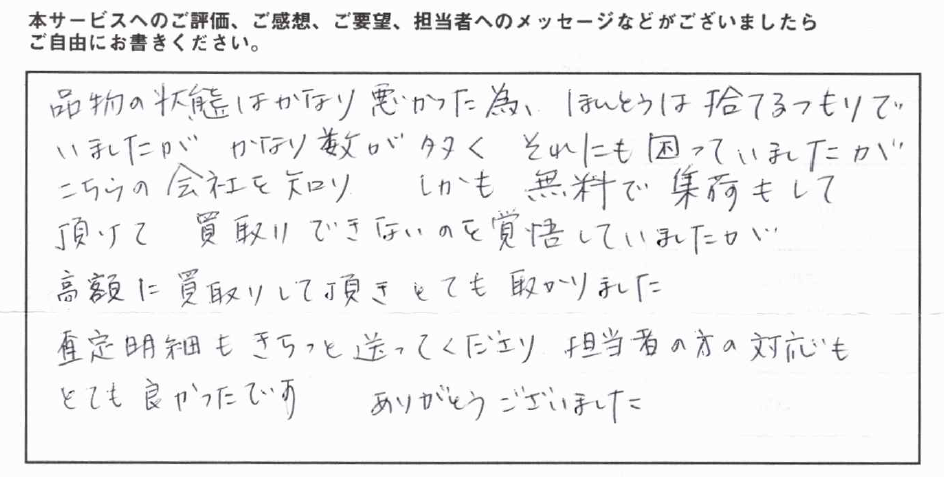 本サービスへのご評価、ご感想、ご要望、担当者へのメッセージなどがございましたら
ご自由にお書きください。
品物の状態はかなり悪かった為、ほんとうは捨てるつもりで
いましたが かなり数が多く それにも困っていましたが
こちらの会社を知り しかも 無料で 集荷もして
頂けて 買取りできないのを覚悟していましたが
高額に買取りして頂き とても 取かりました
査定明細も きちっと 送ってくださり 担当者の方の対応も
とても良かったです ありがとうございました